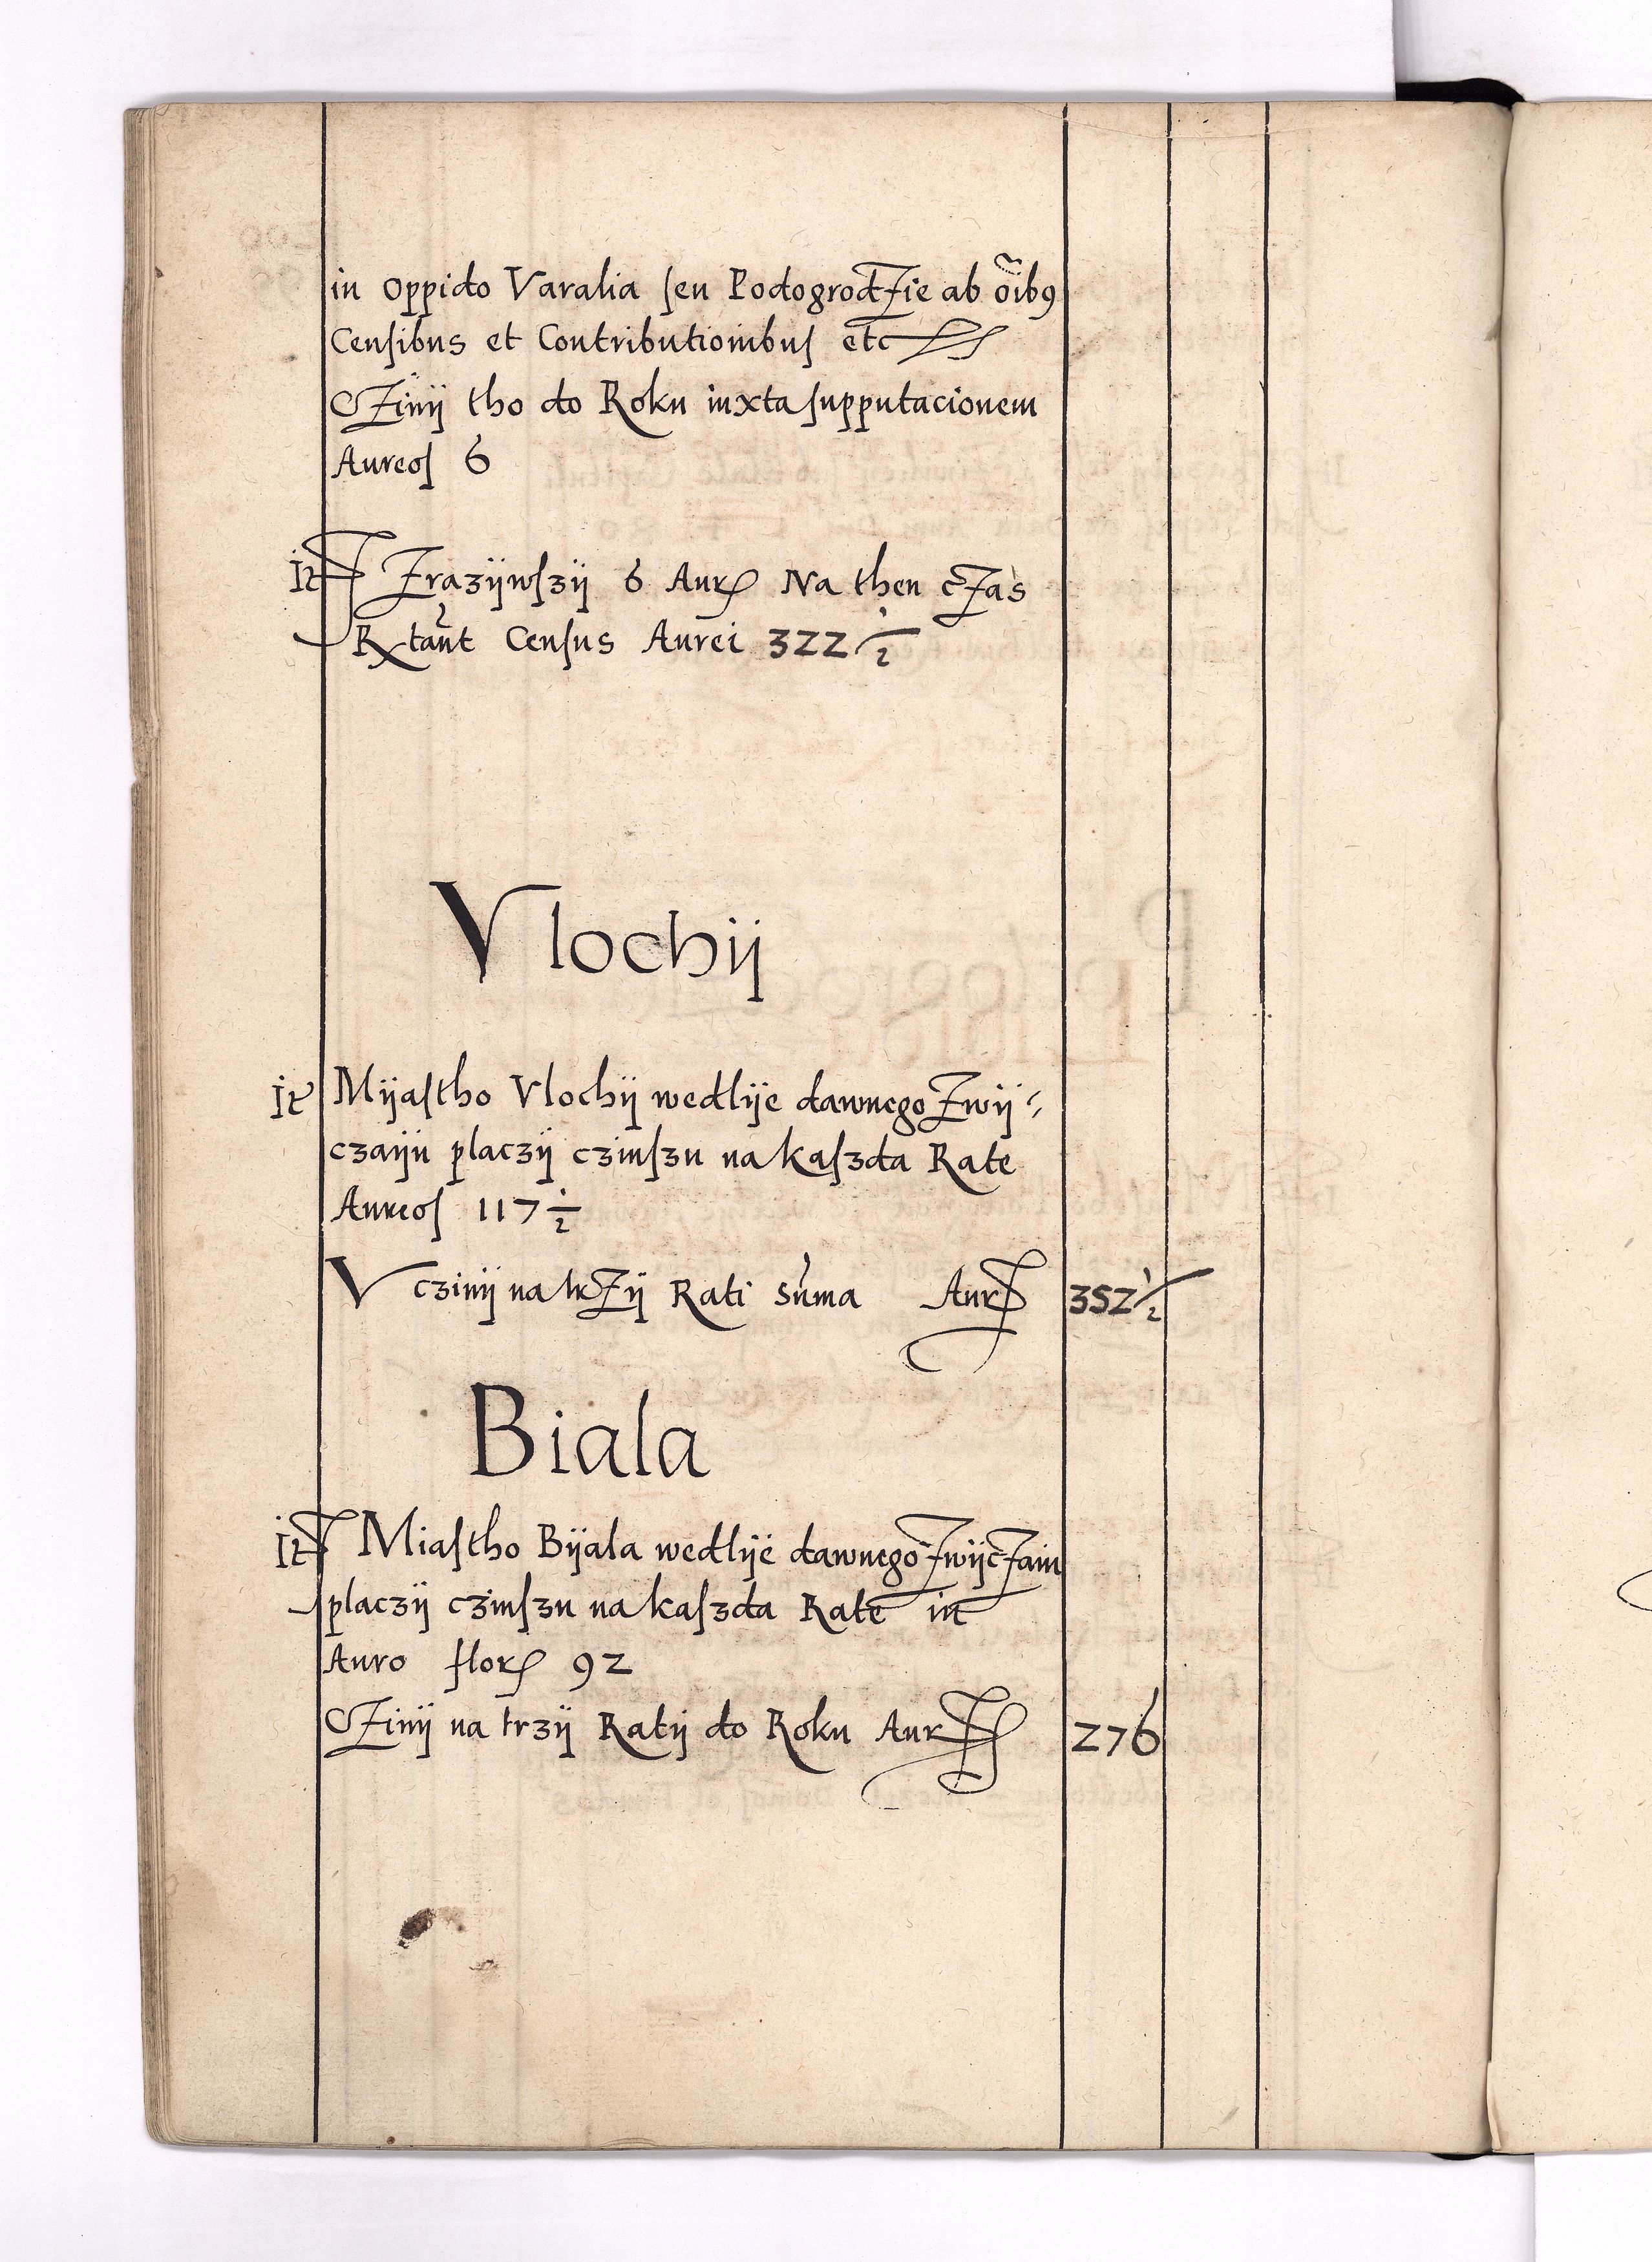 in oppido Varalia ſeu PodogrodZie ab õibꝯ
Cenſibus et Contributionibuſ etc
CZinÿ tho do Roku iuxta ſupputacionem
Aureoſ 6
It Zrazÿwſzÿ 6 Aur Na then cZas
Rxtant Cenſus Aurei 322 1/2
Vlochÿ
It Mÿaſtho Vlochÿ wedlÿe dawnego Zwÿ
czaÿu placzÿ czinſzu na kaſzda Rate
Aureoſ 117 1/2
V czinÿ na trZÿ Rati Sum̃a Aur 352 1/2
Biala
It Miaſtho Bÿala wedlÿe dawnego ZwÿcZaiu
placzÿ czinſzu na kaſzda Rate in
Auro flor 92
CZinÿ na trzÿ Ratÿ do Roku Aur 276